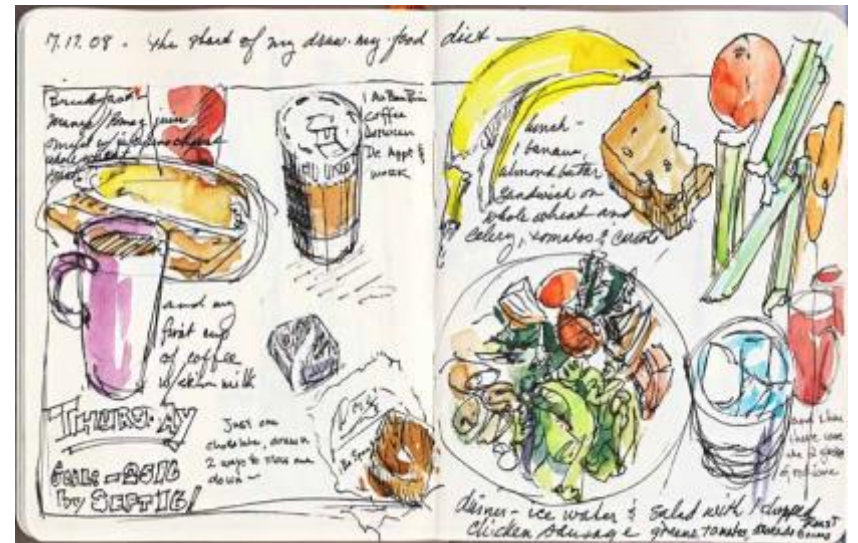 7.17.08 - The start of my draw-my-food diet -
Breakfast -
Mango/
omelet w/ cheese
whole wheat
toast
1 Au Bon Pain
coffee
between
Dr. Appt &
work
and my
first cup
of coffee
w/ skim milk
THURSDAY
by SEPT 16!
Just one
chocolate, drawn
2 ways to slow me
down -
lunch -
1 banana
almond butter
sandwich on
whole wheat and
celery, tomatoes & carrots
and
there were
the 2 glasses
of red wine
dinner - ice water & salad with 1 chopped
chicken sausage greens, tomatoes,